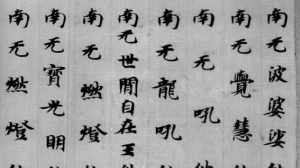 南无波婆娑
南无覺慧
南无吼
南无龍吼
南无世間自在王
南无燃燈
南无寶光明
南无燃燈